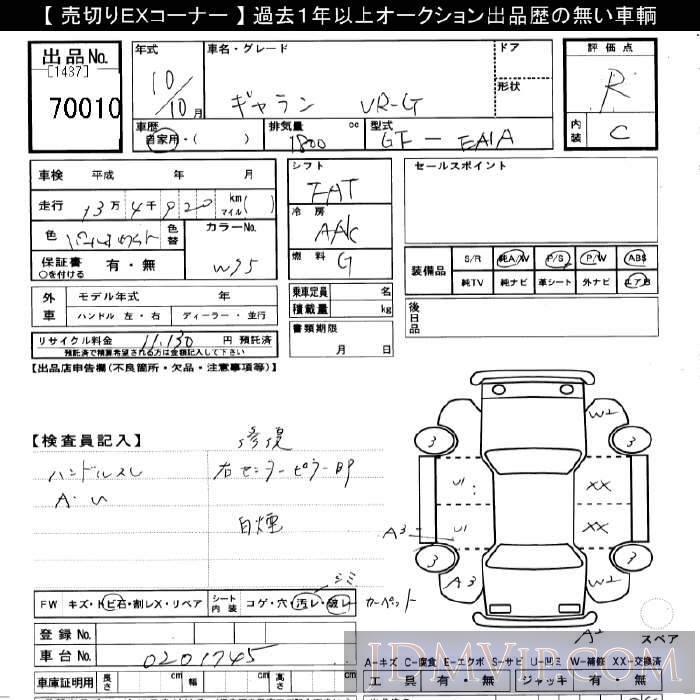 【 売切りEXコーナー 】 過去１年以上オークション出品歴の無い車輌
出品No.
[1437]
70010
年式
10/10月
車名・グレード
ギャラン VR-G
ドア
形状
評価点
R
内装
C
車歴
自家用・( )
排気量
1800 cc
型式
GF - EA1A
車検 平成 年 月
走行 13万4千920 km マイル( )
色
色替
カラーNo.
W75
保証書 有・無
○を付ける
シフト
FAT
冷房
AAC
燃料
G
セールスポイント
装備品
S/R 純A/W P/S P/W ABS
純TV 純ナビ 革シート 外ナビ エアB
外車
モデル年式 年
ハンドル 左・右 ディーラー・並行
乗車定員 名
積載量 kg
書類期限
月 日
後日品
リサイクル料金 11,130 円 預託済
預託済で精算希望される方は金額記入して下さい
【出品店申告欄(不良箇所・欠品・注意事項等)】
【検査員記入】
修復
ハンドルスレ
右センターピラーBP
A・U
白煙
W2
3
3
U1
XX
A3
U1
XX
3
3
A3
W2
A2
スペア
シミ
FW キズ・トビ石・割レX・リペア
シート内装
コゲ・穴・汚レ・破レ
カーペット
登録No.
車台No.
0201745
A-キズ C-腐食 E-エクボ S-サビ U-凹ミ W-補修 XX-交換済
車庫証明用 長さ cm 幅 cm 高さ cm
工具 有・無 ジャッキ 有・無
IDMVIP.COM